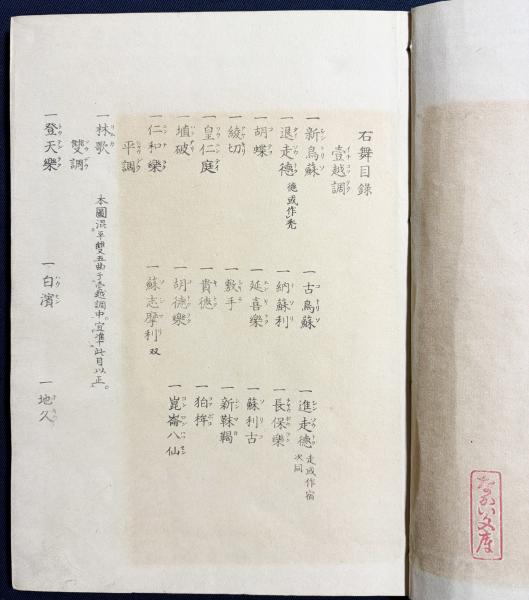 右舞目錄
壹越調
一新鳥蘇 一古鳥蘇 一進走德 走或作宿次同
一退走德 德或作禿 一納蘇利 一長保樂
一胡蝶 一延喜樂 一蘇利古
一綾切 一敷手 一新靺鞨
一皇仁庭 一貴德 一狛桙
一埴破 一胡德樂 一崑崙八仙
一仁和樂 一蘇志摩利 双
平調
一林歌
雙調
一登天樂 一白濱 一地久
本圖混平雙五曲于壹越調中。宜準此目以正。
ないい文庫